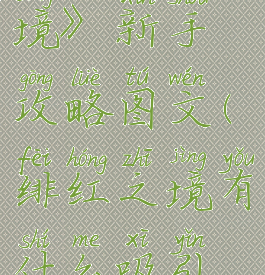 xīn shǒu
境》 新手
gōng lüè tú wén
攻略图文（
fēi hóng zhī jìng yǒu
绯红之境有
shí me xī yǐn
什么吸引